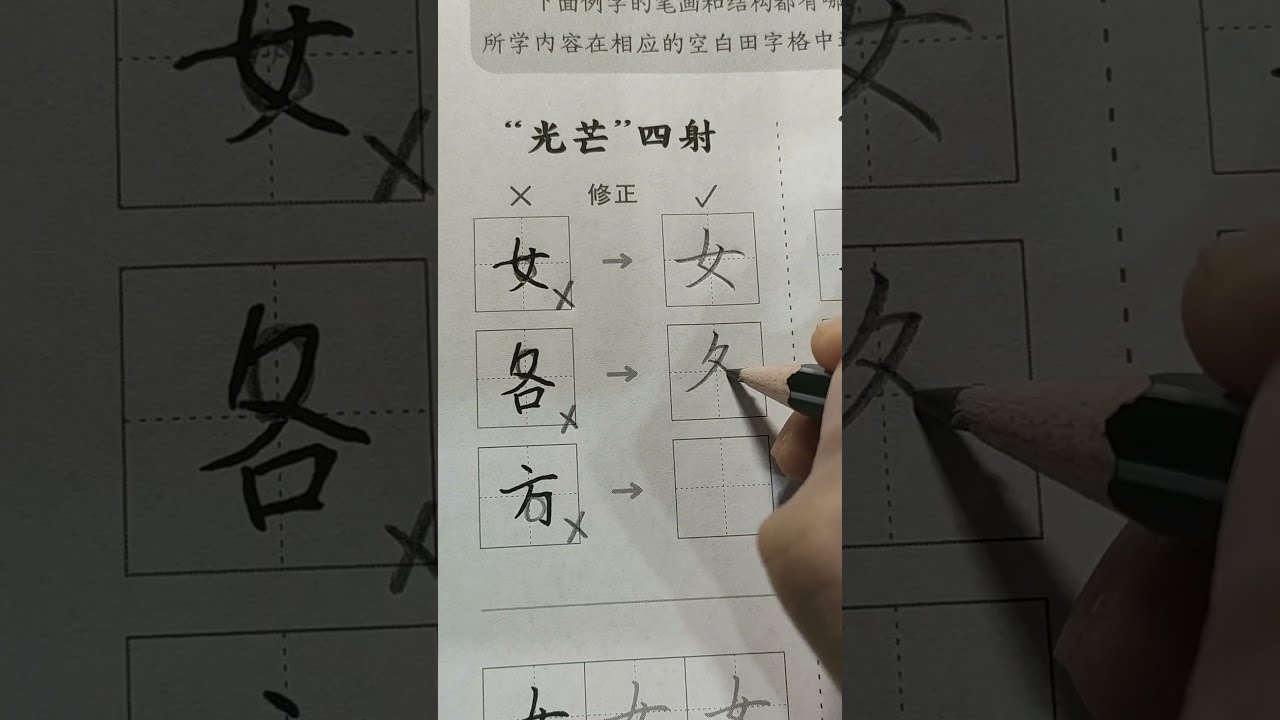 下面例字的笔画和结构都有哪
所学内容在相应的空白田字格中
“光芒”四射
× 修正 ✓
女 × → 女
各 × → 夂
方 × →
女 女 女